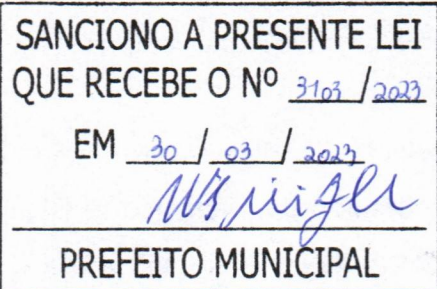 SANCIONO A PRESENTE LEI
QUE RECEBE O Nº 3103 / 2023
EM 30 / 03 / 2023
PREFEITO MUNICIPAL